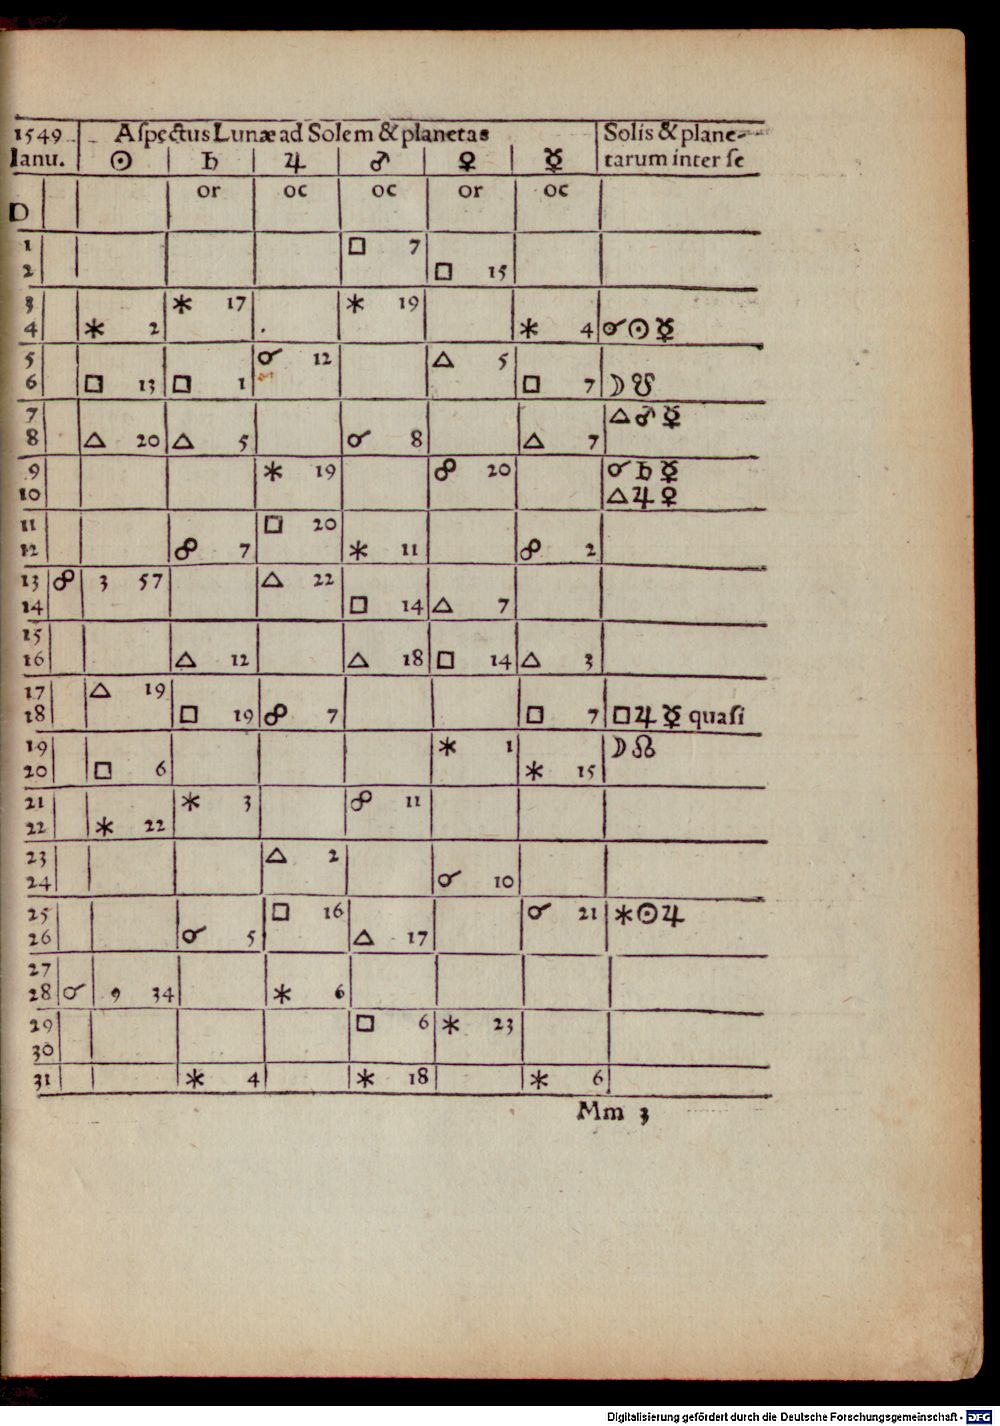 1549 Aſpectus Lunæ ad Solem & planetas Solis & plane-
Ianu. ☉ ♄ ♃ ♂ ♀ ☿ tarum inter ſe
or oc oc or oc
D
1 □ 7
2 □ 15
3 ⚹ 17 ⚹ 19
4 ⚹ 2 ⚹ 4 ☌ ☉ ☿
5 ☌ 12 △ 5
6 □ 13 □ 1 □ 7 ☽ ☋
7 △ ♂ ☿
8 △ 20 △ 5 ☌ 8 △ 7
9 ⚹ 19 ☍ 20 ☌ ♄ ☿
10 △ ♃ ♀
11 □ 20
12 ☍ 7 ⚹ 11 ☍ 2
13 ☍ 3 57 △ 22
14 □ 14 △ 7
15
16 △ 12 △ 18 □ 14 △ 3
17 △ 19
18 □ 19 ☍ 7 □ 7 □ ♃ ☿ quaſi
19 ⚹ 1 ☽ ☊
20 □ 6 ⚹ 15
21 ⚹ 3 ☍ 11
22 ⚹ 22
23 △ 2
24 ☌ 10
25 □ 16 ☌ 21 ⚹ ☉ ♃
26 ☌ 5 △ 17
27
28 ☌ 9 34 ⚹ 6
29 □ 6 ⚹ 23
30
31 ⚹ 4 ⚹ 18 ⚹ 6
Mm 3
Digitalisierung gefördert durch die Deutsche Forschungsgemeinschaft - DFG